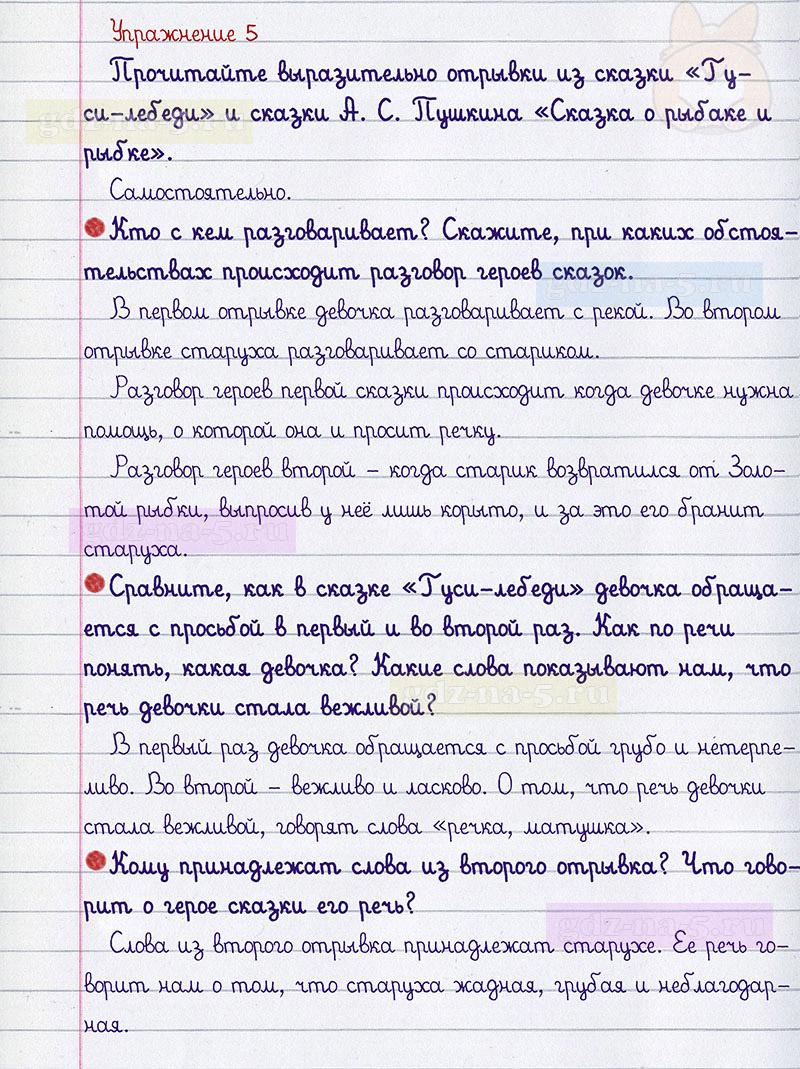 Упражнение 5
Прочитайте выразительно отрывки из сказки «Гу-
си-лебеди» и сказки А. С. Пушкина «Сказка о рыбаке и
gdz-na-5.ru
рыбке».
Самостоятельно.
Кто с кем разговаривает? Скажите, при каких обстоя-
тельствах происходит разговор героев сказок.
gdz-na-5.ru
В первом отрывке девочка разговаривает с рекой. Во втором
отрывке старуха разговаривает со стариком.
Разговор героев первой сказки происходит когда девочке нужна
помощь, о которой она и просит речку.
Разговор героев второй – когда старик возвратился от Золо-
той рыбки, выпросив у неё лишь корыто, и за это его бранит
gdz-na-5.ru
старуха.
Сравните, как в сказке «Гуси-лебеди» девочка обраща-
ется с просьбой в первый и во второй раз. Как по речи
понять, какая девочка? Какие слова показывают нам, что
gdz-na-5.ru
речь девочки стала вежливой?
В первый раз девочка обращается с просьбой грубо и нетерпе-
ливо. Во второй – вежливо и ласково. О том, что речь девочки
стала вежливой, говорят слова «речка, матушка».
Кому принадлежат слова из второго отрывка? Что гово-
рит о герое сказки его речь?
gdz-na-5.ru
Слова из второго отрывка принадлежат старухе. Ее речь го-
ворит нам о том, что старуха жадная, грубая и неблагодар-
ная.